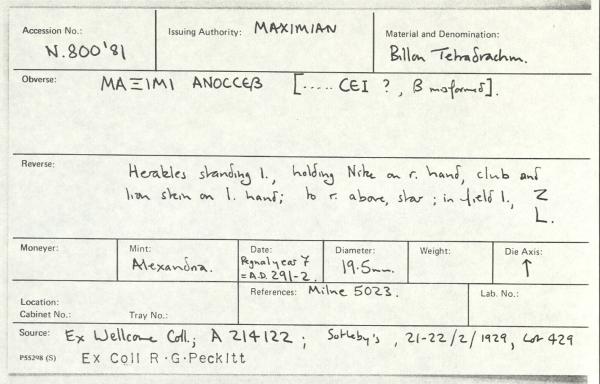 Accession No.: N.800'81
Issuing Authority: MAXIMIAN
Material and Denomination: Billon Tetradrachm.
Obverse: MAΞIMI ANOCCEB [..... CEI ?, B misformed].
Reverse: Herakles standing l., holding Nike on r. hand, club and
lion skin on l. hand; to r. above, star; in field l., Z
L.
Moneyer:
Mint: Alexandria.
Date: Regnal year 7
= A.D. 291-2.
Diameter: 19.5mm.
Weight:
Die Axis: ↑
Location:
Cabinet No.: Tray No.:
References: Milne 5023.
Lab. No.:
Source: Ex Wellcome Coll; A 214122; Sotheby's, 21-22/2/1929, Lot 429
P55298 (S) Ex Coll R.G.Peckitt